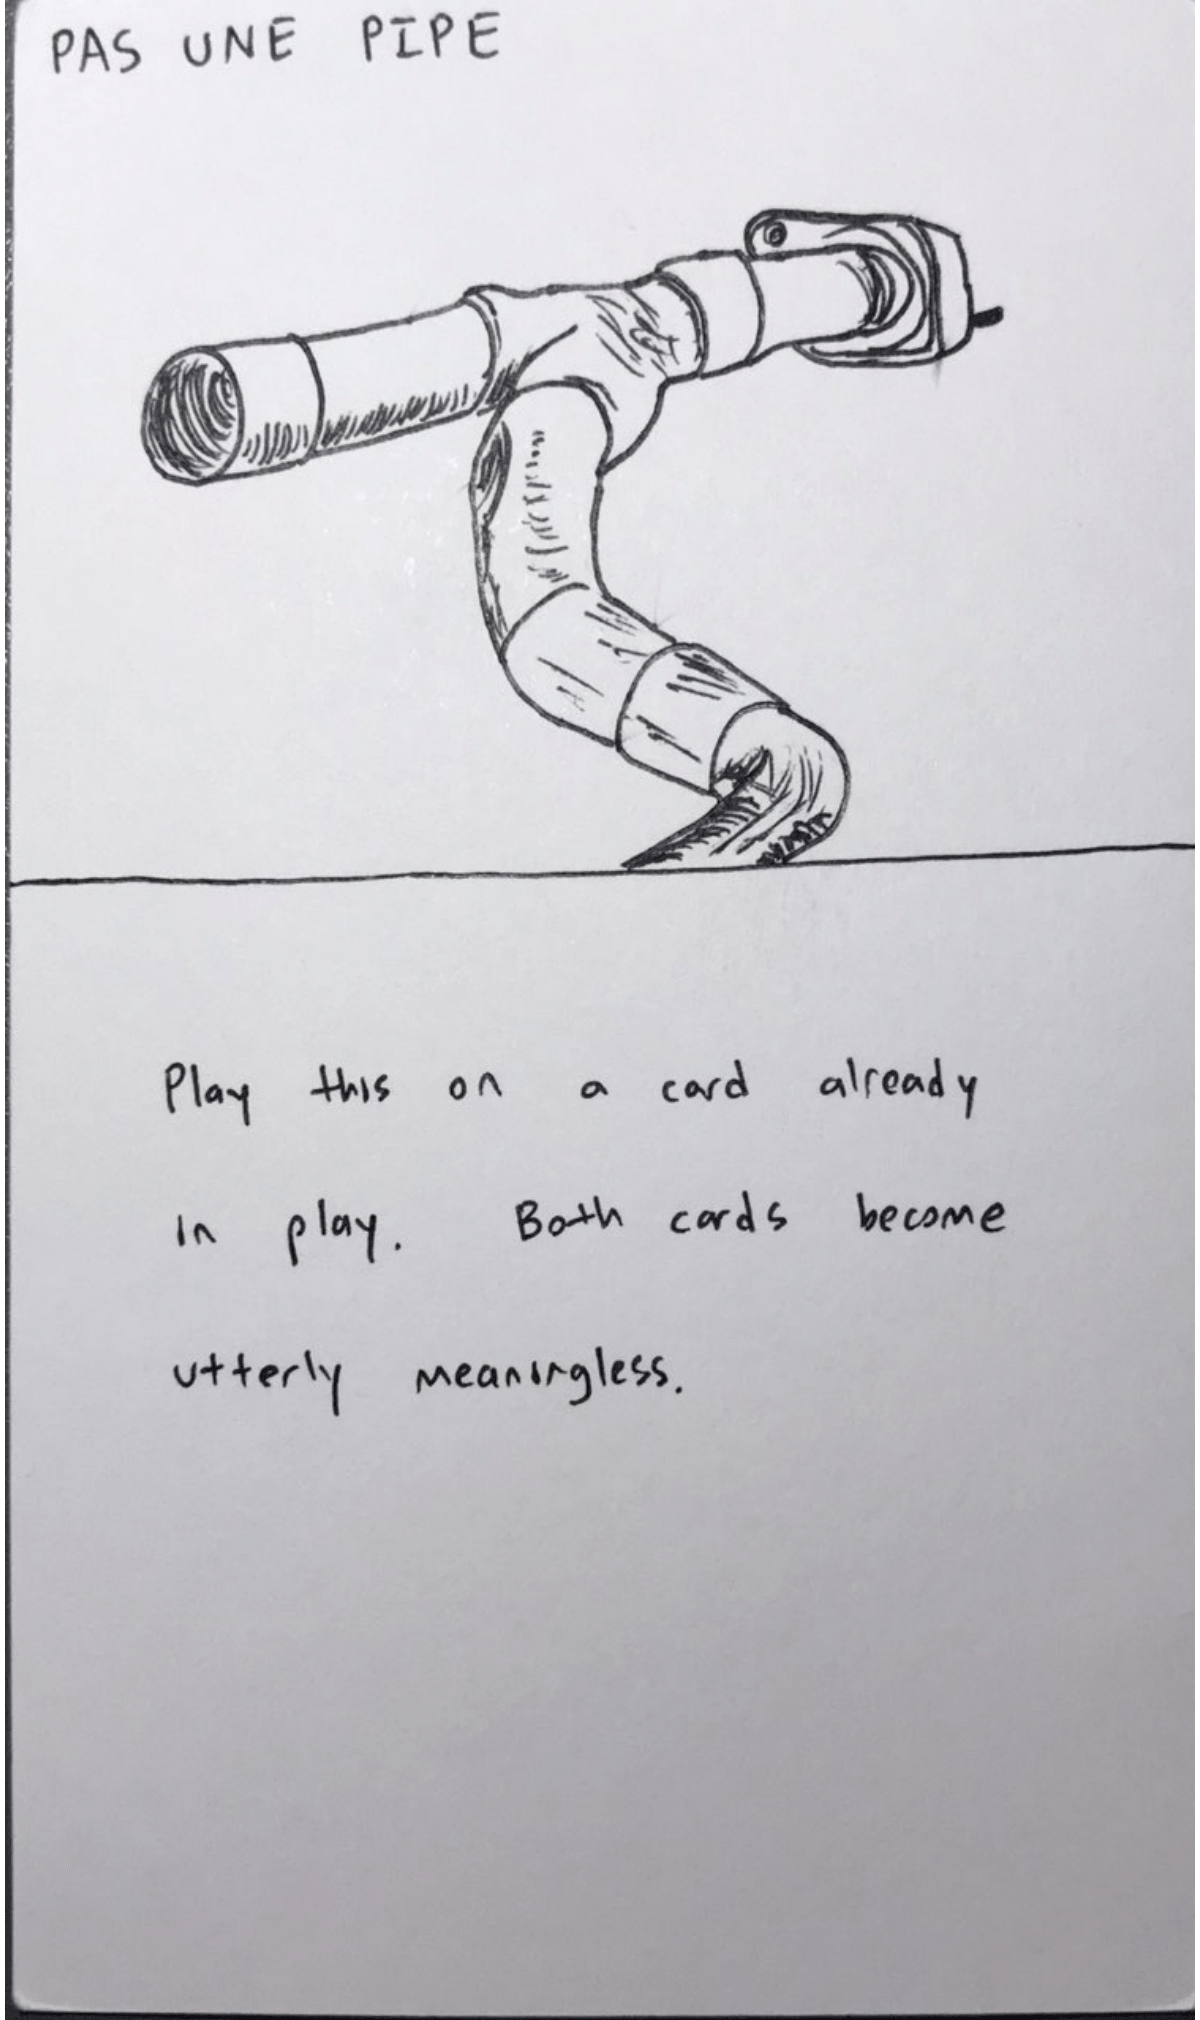 PAS UNE PIPE
Play this on a card already
in play. Both cards become
utterly meaningless.